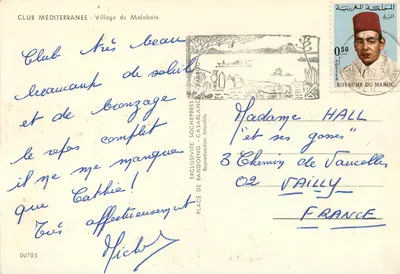 CLUB MEDITERRANEE - Village de Malabata
Club très beau
beaucoup de soleil
et de bronzage
le repos complet
il ne me manque
que Cathie!
Très affectueusement
Michel
00705
EXCLUSIVITÉ SOCHEPRESS
PLACE DE BANDOENG - CASABLANCA
Reproduction interdite
المملكة المغربية
0,50
ROYAUME DU MAROC
Madame HALL
"et ses gosses"
3 Chemin de Vaucelles
02 VAILLY
FRANCE